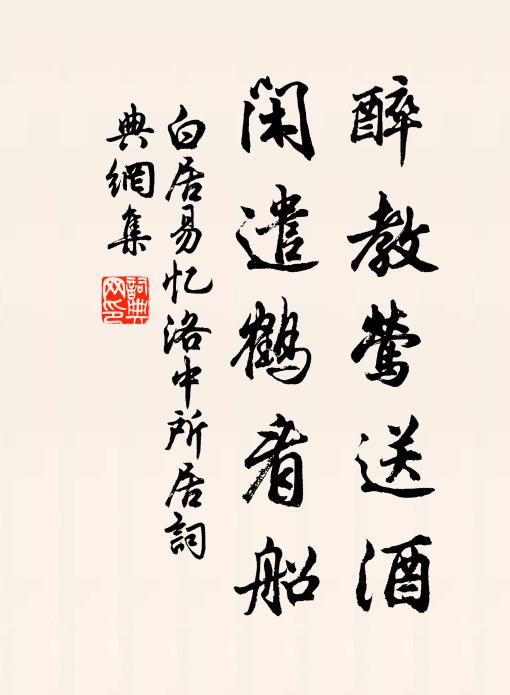 醉教莺送酒
闲遣鹤看船
白居易忆洛中所居詞
典網集
詞典网印